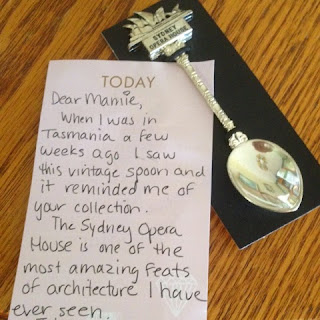 SYDNEY
OPERA HOUSE
TODAY
Dear Mamie,
When I was in
Tasmania a few
weeks ago I saw
this vintage spoon and
it reminded me of
your collection.
The Sydney Opera
House is one of the
most amazing feats
of architecture I have
ever seen.